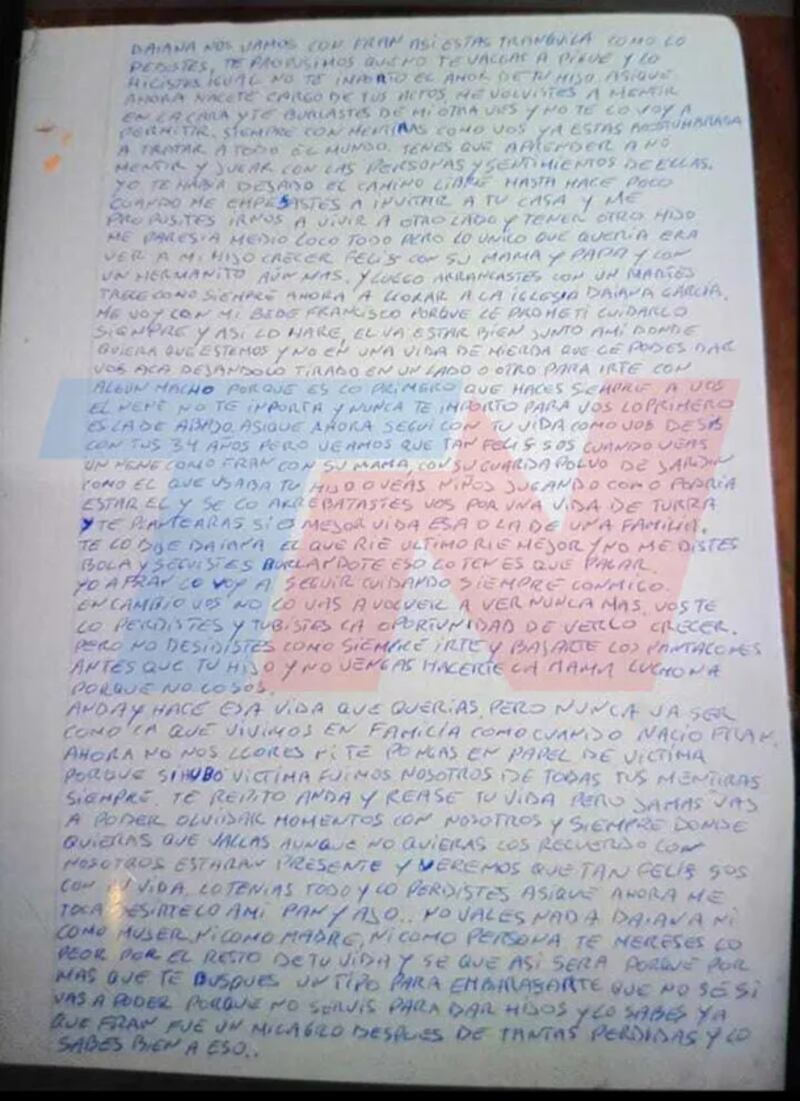 DAIANA NOS VAMOS CON FRAN ASI ESTAS TRANQUILA COMO LO
PEDISTES, TE PROPUSIMOS QUE NO TE VALLAS A PIQUE Y LO
HICISTES IGUAL NO TE INPORTO EL AMOR DE TU HIJO. ASIQUE
AHORA HACETE CARGO DE TUS ACTOS ME VOLVISTES A MENTIR
EN LA CARA Y TE BURLASTES DE MI OTRA VES Y NO TE LO VOY A
PERMITIR. SIEMPRE CON MENTIRAS COMO VOS YA ESTAS ACOSTUMBRADA
A TRATAR A TODO EL MUNDO. TENES QUE APRENDER A NO
MENTIR Y JUGAR CON LAS PERSONAS Y SENTIMIENTOS DE ELLAS.
YO TE HABIA DEJADO EL CAMINO LIBRE HASTA HACE POCO
CUANDO ME EMPESASTES A INVITAR A TU CASA Y ME
PROPUSITES IRNOS A VIVIR A OTRO LADO Y TENER OTRO HIJO
ME PARESIA MEDIO LOCO TODO PERO LO UNICO QUE QUERIA ERA
VER A MI HIJO CRECER FELIS CON SU MAMA Y PAPA Y CON
UN HERMANITO AÚN MAS. Y LUEGO ARRANCASTES CON UN MARTES
TRECE COMO SIEMPRE AHORA A LLORAR A LA IGLESIA DAIANA GARCIA.
ME VOY CON MI BEBE FRANCISCO PORQUE LE PROMETI CUIDARLO
SIEMPRE Y ASI LO HARE, EL VA ESTAR BIEN JUNTO AMI DONDE
QUIERA QUE ESTEMOS Y NO EN UNA VIDA DE MIERDA QUE LE PODES DAR
VOS ACA DEJANDOLO TIRADO EN UN LADO O OTRO PARA IRTE CON
ALGUN MACHO PORQUE ES LO PRIMERO QUE HACES SIEMPRE. A VOS
EL NENE NO TE INPORTA Y NUNCA TE IMPORTO PARA VOS LO PRIMERO
ES LA DE ABAJO. ASIQUE AHORA SEGUI CON TU VIDA COMO VOS DESIS
CON TUS 34 AÑOS PERO VEAMOS QUE TAN FELIS SOS CUANDO VEAS
UN NENE COMO FRAN CON SU MAMA, CON SU GUARDA POLVO DE JARDIN
COMO EL QUE USABA TU HIJO O VEAS NIÑOS JUGANDO COMO PODRIA
ESTAR EL Y SE LO ARREBATASTES VOS POR UNA VIDA DE TURRA
Y TE PLANTEARAS SI ES MEJOR VIDA ESA O LA DE UNA FAMILIA.
TE LO DIJE DAIANA EL QUE RIE ULTIMO RIE MEJOR Y NO ME DISTES
BOLA Y SEGUISTES BURLANDOTE ESO LO TENES QUE PAGAR.
YO A FRAN LO VOY A SEGUIR CUIDANDO SIEMPRE CONMIGO.
EN CAMBIO VOS NO LO VAS A VOLVER A VER NUNCA MAS. VOS TE
LO PERDISTES Y TUBISTES LA OPORTUNIDAD DE VERLO CRECER.
PERO NO DESIDISTES COMO SIEMPRE IRTE Y BAJARTE LOS PANTALONES
ANTES QUE TU HIJO Y NO VENGAS HACERTE LA MAMA LUCHONA
PORQUE NO LO SOS.
ANDA Y HACE ESA VIDA QUE QUERIAS. PERO NUNCA VA SER
COMO LA QUE VIVIMOS EN FAMILIA COMO CUANDO NACIO FRAN.
AHORA NO NOS LLORES NI TE PONGAS EN PAPEL DE VICTIMA
PORQUE SI HUBO VICTIMA FUIMOS NOSOTROS DE TODAS TUS MENTIRAS
SIEMPRE. TE REPITO ANDA Y REASE TU VIDA PERO JAMAS VAS
A PODER OLVIDAR MOMENTOS CON NOSOTROS Y SIEMPRE DONDE
QUIERAS QUE VALLAS AUNQUE NO QUIERAS LOS RECUERDO CON
NOSOTROS ESTARAN PRESENTE Y VEREMOS QUE TAN FELIS SOS
CON TU VIDA. LO TENIAS TODO Y LO PERDISTES ASIQUE AHORA ME
TOCA DESIRTELO AMI PAN Y AJO.. NO VALES NADA DAIANA NI
COMO MUJER, NI COMO MADRE, NI COMO PERSONA TE MERESES LO
PEOR POR EL RESTO DE TU VIDA Y SE QUE ASI SERA PORQUE POR
MAS QUE TE BUSQUES UN TIPO PARA EMBARASARTE QUE NO SE SI
VAS A PODER PORQUE NO SERVIS PARA DAR HIJOS Y LO SABES YA
QUE FRAN FUE UN MILAGRO DESPUES DE TANTAS PERDIDAS Y LO
SABES BIEN A ESO..
TN